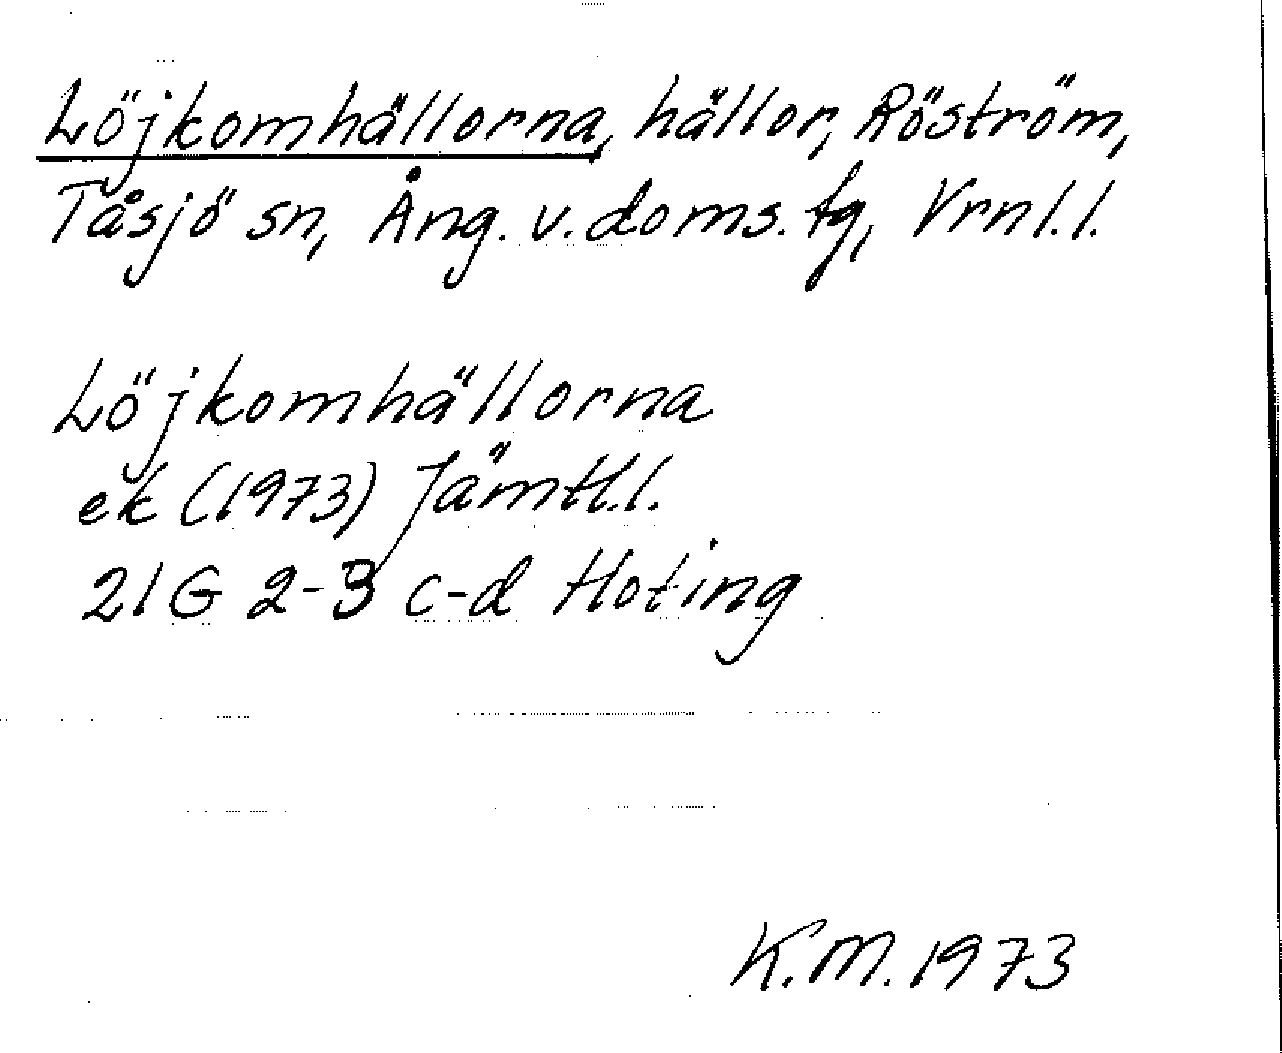 Löjkomhällorna, hällor, Röström,
Tåsjö sn, Ång. v. doms. tg, Vrnl. l.
Löjkomhällorna
ek (1973) Jämtl. l.
21G 2-3 c-d Hoting
K.M. 1973